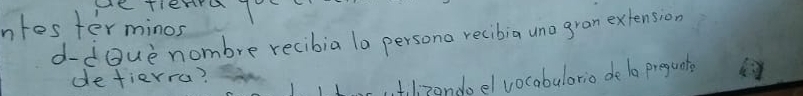 de
ntos términos
d-¿Què nombre recibia la persona recibia una gran extension
de tierra?
utilizando el vocabulario de la